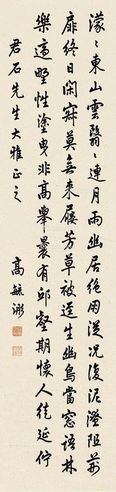 濛〻東山雲翳〻連月雨幽居絕朋從況復泥潦阻荊
扉終日閑寂莫無來屨芳草被逕生幽鳥當窗語林
樂適野性塗曳非高舉曩有邱壑期懷人徒延佇
君石先生大雅正之 高毓浵